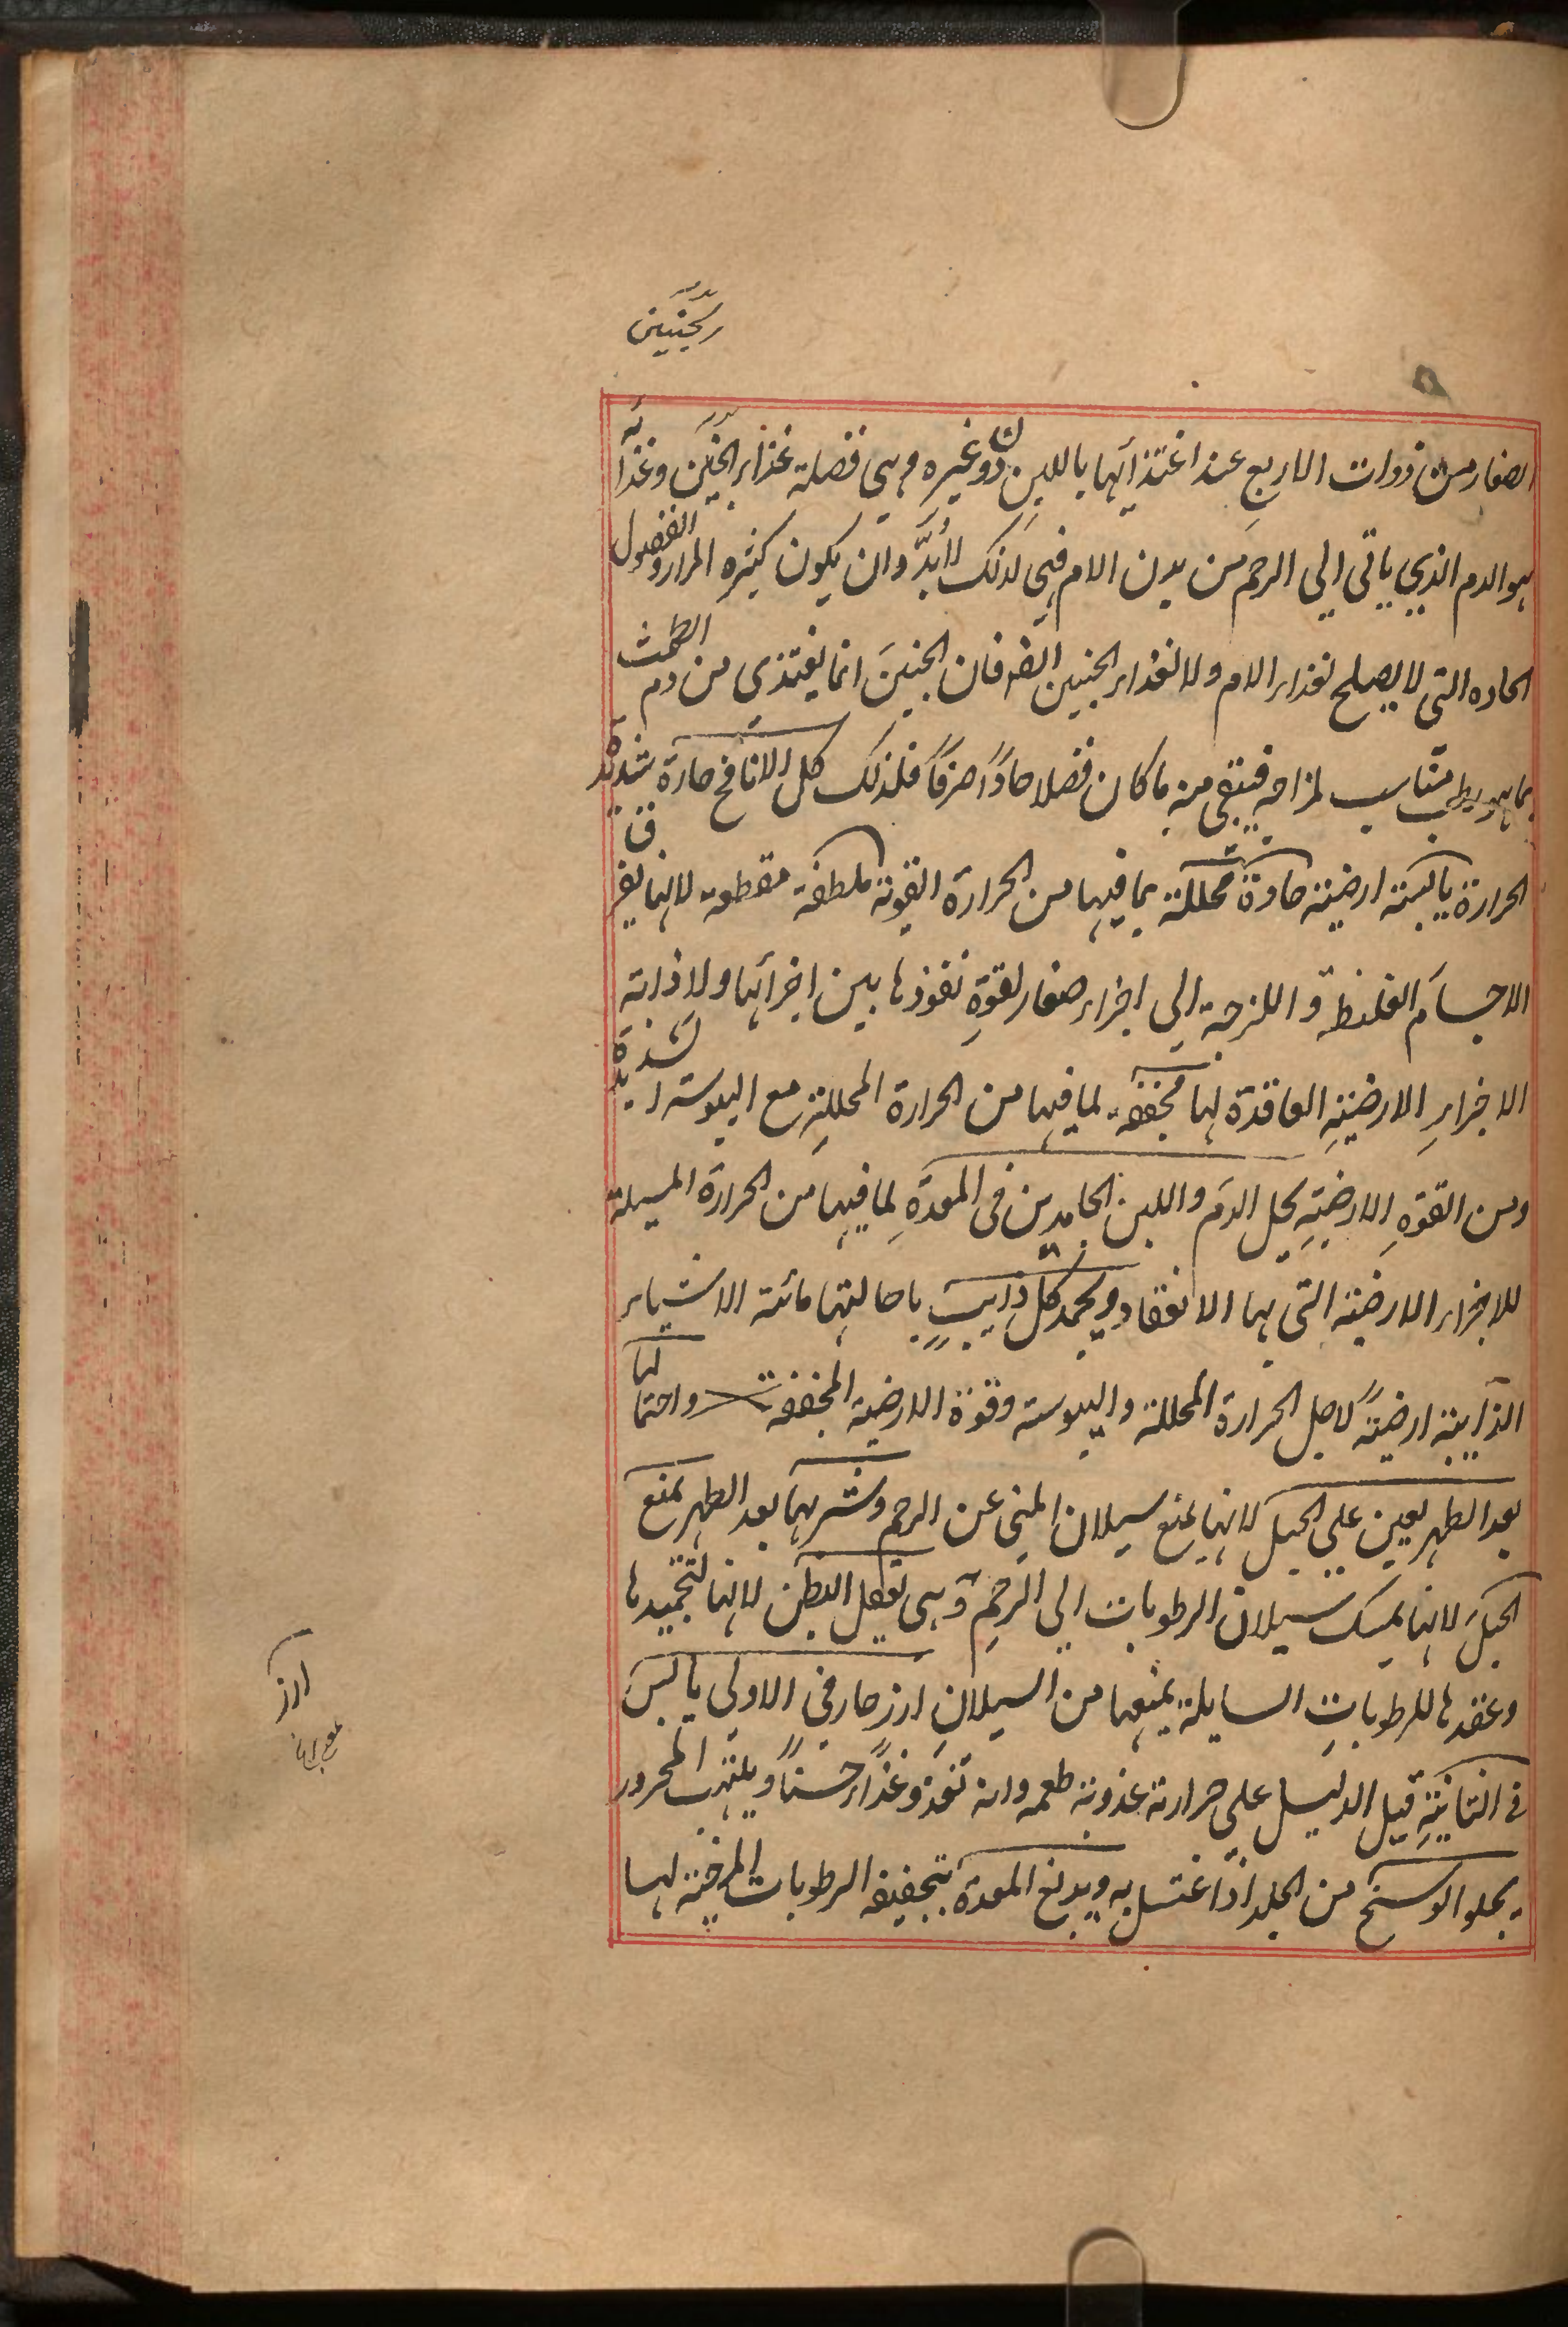 الصغار من ذوات الاربع عند اغتذائها باللبن دون غيره وهي فضلة غذاء الجنين وغذائه
هو الدم الذي ياتي الي الرحم من بدن الام فهي لذلك لابد وان يكون كثيرة المرار والفضول
الحاده التي لا يصلح لغذاء الام ولا لغذاء الجنين ايضا فان الجنين انما يغتذي من دم الطمث
بما هو رطب مناسب لمزاجه فيبقي منه ما كان فضلا حادا حرفا فلذلك كل الانافح حارة شديدة
الحرارة يابسة ارضية حادة محللة بما فيها من الحرارة القوية ملطفة مقطعة لانها يفرق
الاجسام الغليظة و اللزجة الي اجزاء صغار لقوة نفوذها بين اجزائها ولاذابة
الاجزاء الارضية العاقدة لها مجففة لما فيها من الحرارة المحللة مع اليبوسة الشديدة
ومن القوة الارضية يحل الدم واللبن الجامدين في المعدة لما فيها من الحرارة المسيلة
للاجزاء الارضية التي بها الانعقاد ويجمد كل ذايب باحالتها مائية الاشياء
الذايبة ارضية لاجل الحرارة المحللة واليبوسة وقوة الارضية المجففة واحتمالها
بعد الطهر يعين علي الحبل لانها يمنع سيلان المني عن الرحم وشربها بعد الطهر يمنع
الحبل لانها يمسك سيلان الرطوبات الي الرحم وهي تعقل البطن لانها لتجميدها
وعقدها للرطوبات السايلة يمنعها من السيلان ارز حار في الاولي يابس
في الثانية قيل الدليل علي حرارته عذوبة طعمه وانه تغذو غذاء حسنا ويلتهب المحرور
يجلو الوسخ من الجلد اذا اغتسل به ويدبغ المعدة بتجفيفه الرطوبات المرخية لها
ارز